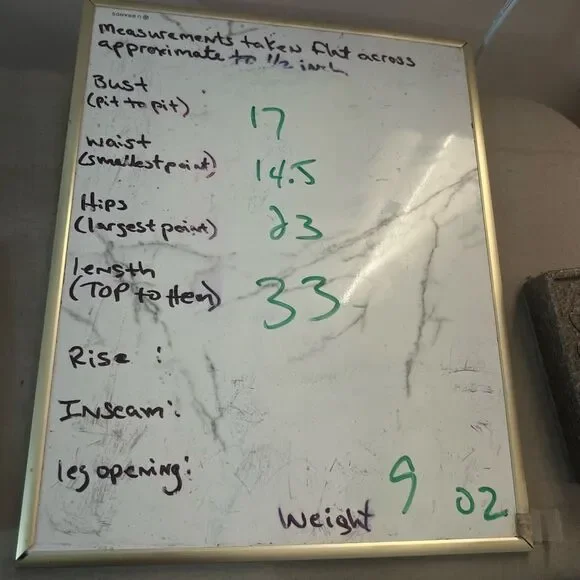 Measurements taken flat across
approximate to 1/2 inch
Bust
(pit to pit) 17
waist
(smallest point) 14.5
Hips
(largest point) 23
length
(TOP to Hem) 33
Rise :
Inseam:
leg opening:
Weight 9 oz